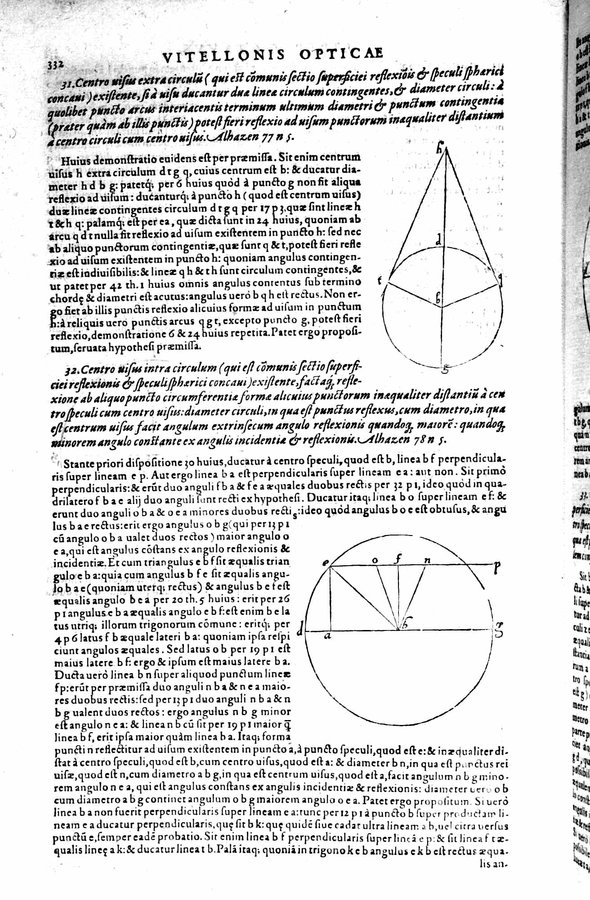 332
VITELLONIS OPTICAE
31. Centro uisus extra circulũ (qui est cõmunis sectio superficiei reflexiõis & speculi sphærici
concaui) existente, si à uisu ducantur duæ lineæ circulum contingentes, & diameter circuli: à
quolibet puncto arcus interiacentis terminum ultimum diametri & punctum contingentiæ
(præter quàm ab illis punctis) potest fieri reflexio ad uisum punctorum inæqualiter distantium
à centro circuli cum centro uisus. Alhazen 77 n 5.
Huius demonstratio euidens est per præmissa. Sit enim centrum
uisus h extra circulum d t g q, cuius centrum est b: & ducatur dia-
meter h d b g: patetq́; per 6 huius quòd à puncto g non fit aliqua
reflexio ad uisum: ducanturq́; à puncto h (quod est centrum uisus)
duæ lineæ contingentes circulum d t g q per 17 p 3, quæ sint lineæ h
t & h q: palamq́; est per ea, quæ dicta sunt in 24 huius, quoniam ab
arcu q d t nulla fit reflexio ad uisum existentem in puncto h: sed nec
ab aliquo punctorum contingentiæ, quæ sunt q & t, potest fieri refle
xio ad uisum existentem in puncto h: quoniam angulus contingen-
tiæ est indiuisibilis: & lineæ q h & t h sunt circulum contingentes, &
ut patet per 42 th. 1 huius omnis angulus contentus sub termino
chordę & diametri est acutus: angulus uerò b q h est rectus. Non er-
go fiet ab illis punctis reflexio alicuius formæ ad uisum in punctum
h: à reliquis uero punctis arcus q g t, excepto puncto g, potest fieri
reflexio, demonstratione 6 & 24 huius repetita. Patet ergo proposi-
tum, seruata hypothesi præmissa.
h
d
t
q
b
g
32. Centro uisus intra circulum (qui est cõmunis sectio superfi-
ciei reflexionis & speculi sphærici concaui) existente, factaq́, refle-
xione ab aliquo puncto circumferentiæ formæ alicuius punctorum inæqualiter distantiũ à cen
tro speculi cum centro uisus: diameter circuli, in qua est punctus reflexus, cum diametro, in qua
est centrum uisus facit angulum extrinsecum angulo reflexionis quandoq́, maiorẽ: quandoq́,
minorem angulo constante ex angulis incidentiæ & reflexionis. Alhazen 78 n 5.
Stante priori dispositione 30 huius, ducatur à centro speculi, quod est b, linea b f perpendicula-
ris super lineam e p. Aut ergo linea b a est perpendicularis super lineam e a: aut non. Sit primò
perpendicularis: & erũt duo anguli f b a & f e a æquales duobus rectis per 32 p 1, ideo quòd in qua-
drilatero f b a e alij duo anguli sunt recti ex hypothesi. Ducatur itaq; linea b o super lineam e f: &
erunt duo anguli o b a & o e a minores duobus rectis: ideo quòd angulus b o e est obtusus, & angu
lus b a e rectus: erit ergo angulus o b g (qui per 13 p 1
cũ angulo o b a ualet duos rectos) maior angulo o
e a, qui est angulus cõstans ex angulo reflexionis &
incidentiæ. Et cum triangulus e b f sit æqualis trian
gulo e b a: quia cum angulus b f e sit æqualis angu-
lo b a e (quoniam uterq; rectus) & angulus b e f est
æqualis angulo b e a per 20 th. 5 huius: erit per 26
p 1 angulus e b a æqualis angulo e b f: est enim b e la
tus utriq; illorum trigonorum cõmune: eritq́; per
4 p 6 latus f b æquale lateri b a: quoniam ipsa respi
ciunt angulos æquales. Sed latus o b per 19 p 1 est
maius latere b f: ergo & ipsum est maius latere b a.
Ducta uerò linea b n super aliquod punctum lineæ
f p: erũt per præmissa duo anguli n b a & n e a maio-
res duobus rectis: sed per 13 p 1 duo anguli n b a & n
b g ualent duos rectos: ergo angulus n b g minor
est angulo n e a: & linea n b cũ sit per 19 p 1 maior q̃
linea b f, erit ipsa maior quàm linea b a. Itaq; forma
e
o
f
n
p
d
a
b
g
puncti n reflectitur ad uisum existentem in puncto a, à puncto speculi, quod est e: & inæqualiter di-
stat à centro speculi, quod est b, cum centro uisus, quod est a: & diameter b n, in qua est punctus rei
uisæ, quod est n, cum diametro a b g, in qua est centrum uisus, quod est a, facit angulum n b g mino-
rem angulo n e a, qui est angulus constans ex angulis incidentiæ & reflexionis: diameter uero o b
cum diametro a b g continet angulum o b g maiorem angulo o e a. Patet ergo propositum. Si uerò
linea b a non fuerit perpendicularis super lineam e a: tunc per 12 p 1 à puncto b super productam li-
neam e a ducatur perpendicularis, quę sit b k: quę quidẽ siue cadat ultra lineam a b, uel citra uersus
punctũ e, semper eadẽ probatio. Sit enim linea b f perpendicularis super lineã e p: & sit linea f t æ-
qualis lineę a k: & ducatur linea t b. Palã itaq; quoniã in trigono k e b angulus e k b est rectus æqua-
lis an-